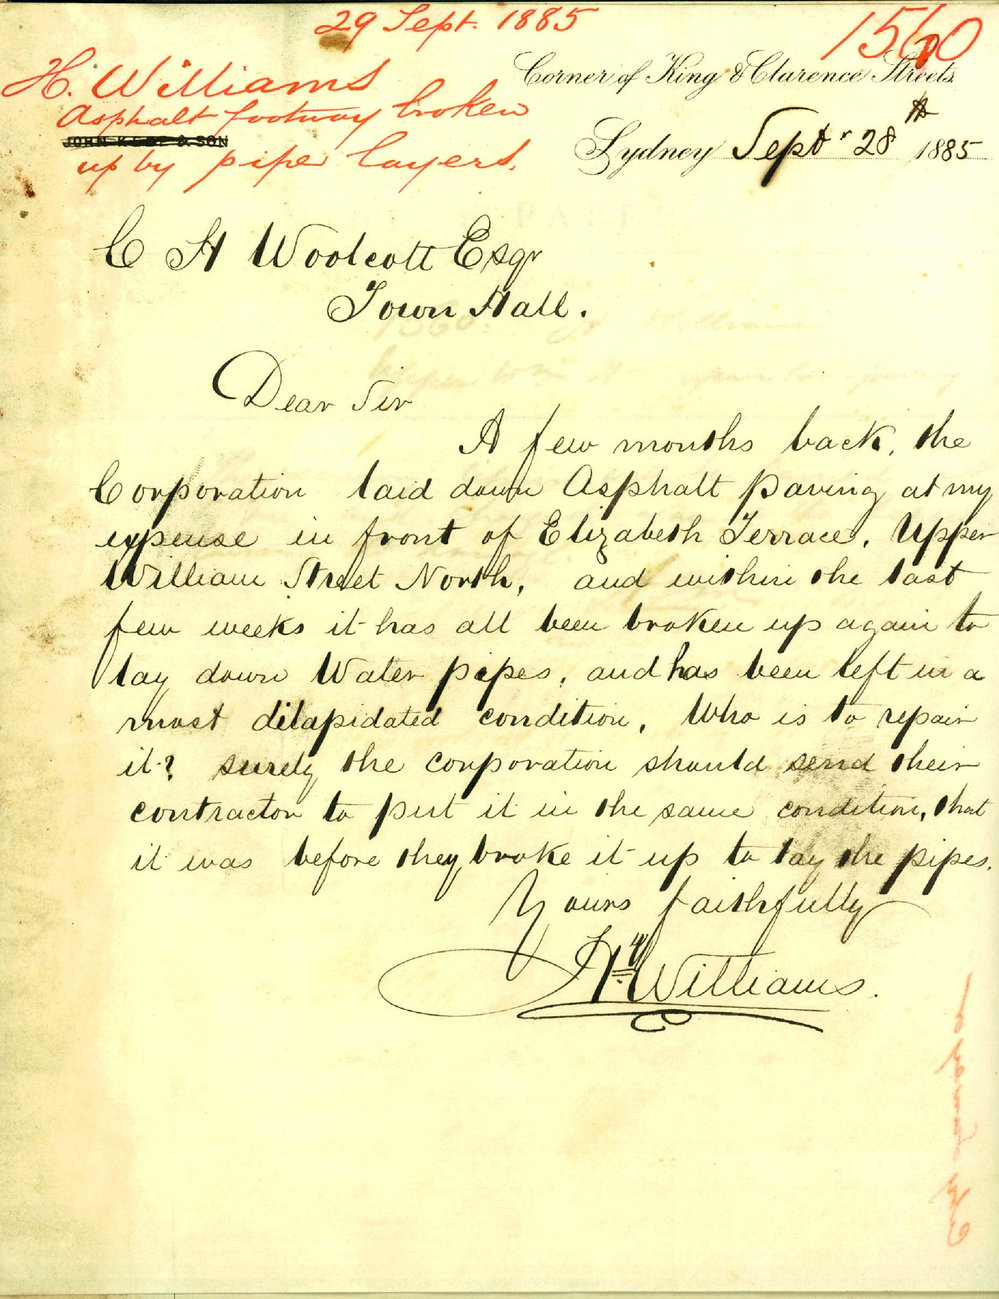 29 Sept. 1885
1560
H. Williams
Asphalt footway broken
JOHN KEEP & SON
up by pipe layers.
Corner of King & Clarence Streets
Sydney Septr 28th 1885
C H Woolcott Esqr
Town Hall.
Dear Sir
A few months back, the
Corporation laid down Asphalt paving at my
expense in front of Elizabeth Terrace, Upper
William Street North, and within the last
few weeks it has all been broken up again to
lay down Water pipes, and has been left in a
most dilapidated condition, Who is to repair
it? surely the corporation should send their
contractor to put it in the same condition, that
it was before they broke it up to lay the pipes.
Yours faithfully
Hy Williams.